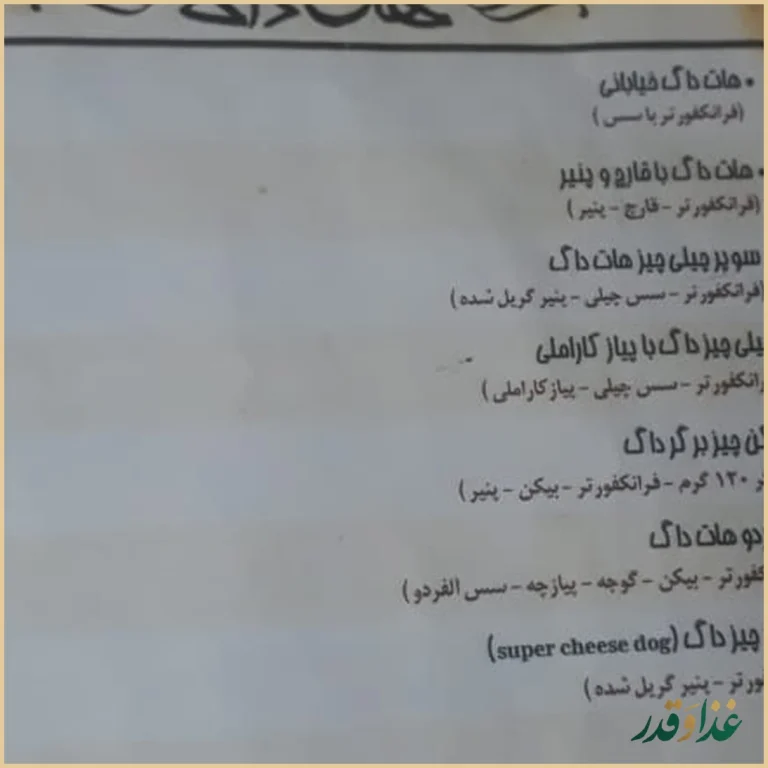 هات داگ
• هات داگ خیابانی
(فرانکفورتر با سس)
• هات داگ با قارچ و پنیر
(فرانکفورتر - قارچ - پنیر)
سوپر چیلی چیز هات داگ
(فرانکفورتر - سس چیلی - پنیر گریل شده)
یلی چیز داگ با پیاز کاراملی
رانکفورتر - سس چیلی - پیاز کاراملی)
کن چیز برگر داگ
ر ۱۲۰ گرم - فرانکفورتر - بیکن - پنیر)
دو هات داگ
کفورتر - بیکن - گوجه - پیازچه - سس الفردو)
چیز داگ (super cheese dog)
ورتر - پنیر گریل شده)
غذا و قدر